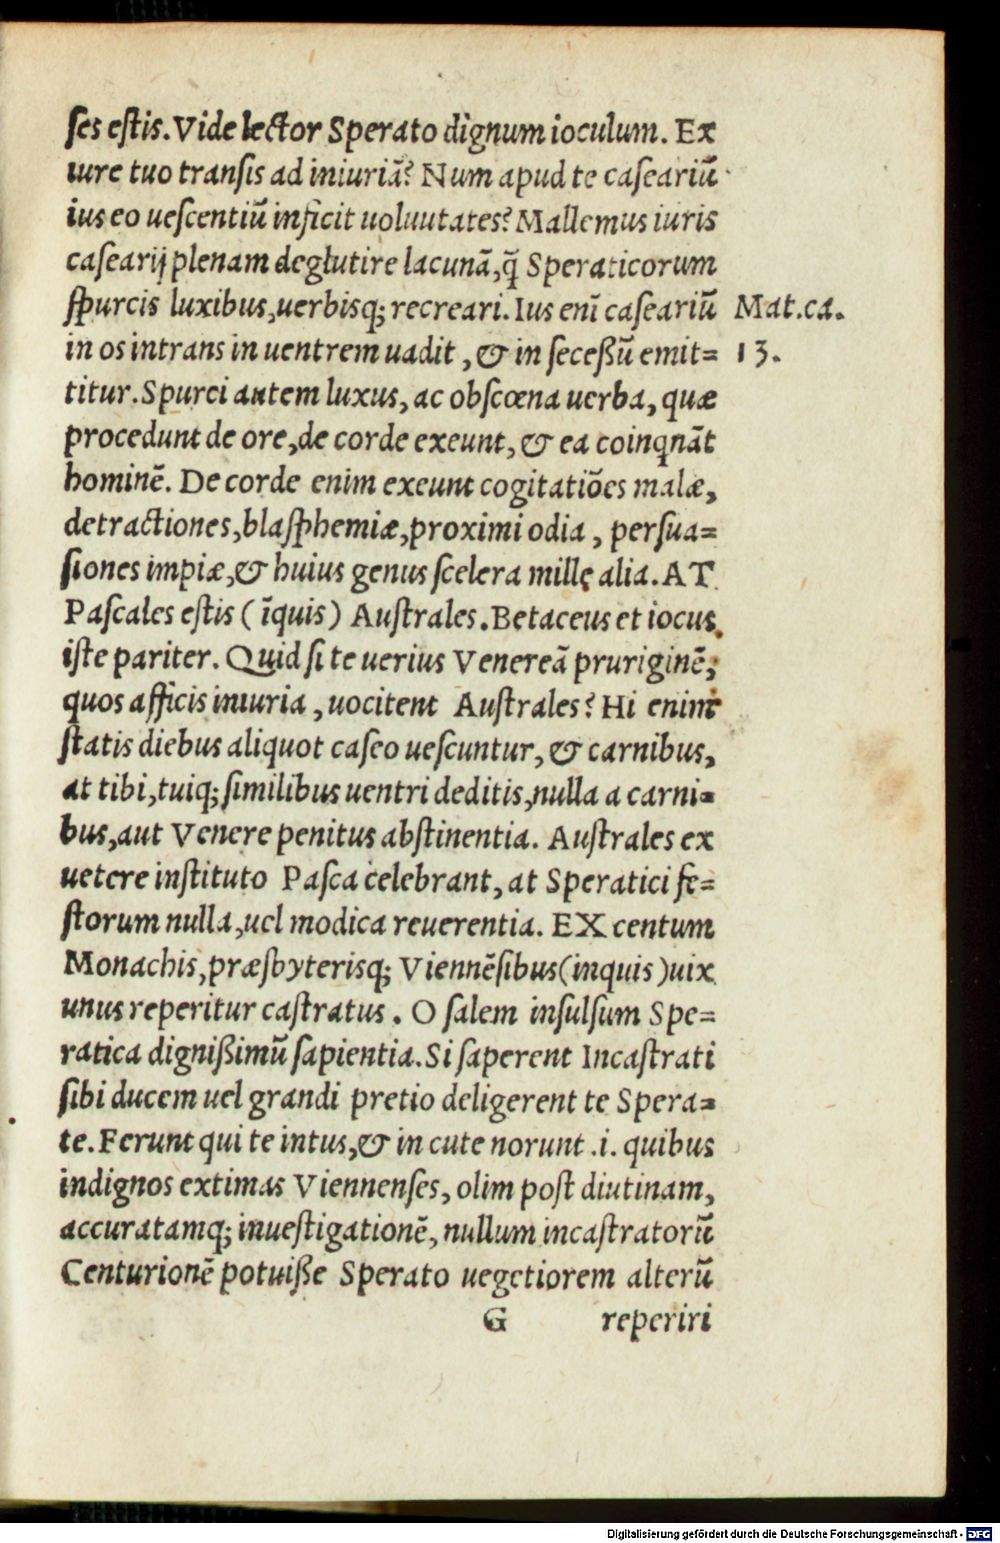 ſes eſtis. Vide lector Sperato dignum ioculum. Ex
iure tuo tranſis ad iniuriã? Num apud te caſeariũ
ius eo ueſcentiũ inficit uoluutates? Mallemus iuris
caſearij plenam deglutire lacunã, q̃ Speraticorum
ſpurcis luxibus, uerbisq; recreari. Ius enĩ caſeariũ
Mat.ca.
in os intrans in uentrem uadit, & in ſeceßũ emit=
13.
titur. Spurci autem luxus, ac obſcœna uerba, quæ
procedunt de ore, de corde exeunt, & ea coinqnãt
hominẽ. De corde enim exeunt cogitatiões malæ,
detractiones, blaſphemiæ, proximi odia, perſua=
ſiones impiæ, & huius genus ſcelera mille alia. AT
Paſcales eſtis (ĩquis) Auſtrales. Betaceus et iocus
iſte pariter. Quid ſi te uerius Venereã pruriginẽ,
quos afficis iniuria, uocitent Auſtrales? Hi enim
ſtatis diebus aliquot caſeo ueſcuntur, & carnibus,
at tibi, tuiq; ſimilibus uentri deditis, nulla a carni=
bus, aut Venere penitus abſtinentia. Auſtrales ex
uetere inſtituto Paſca celebrant, at Speratici fe=
ſtorum nulla, uel modica reuerentia. EX centum
Monachis, præſbyterisq; Viennẽſibus (inquis) uix
unus reperitur caſtratus. O ſalem inſulſum Spe=
ratica dignißimũ ſapientia. Si ſaperent Incaſtrati
ſibi ducem uel grandi pretio deligerent te Spera=
te. Ferunt qui te intus, & in cute norunt .i. quibus
indignos extimas Viennenſes, olim poſt diutinam,
accuratamq; inueſtigationẽ, nullum incaſtratorũ
Centurionẽ potuiße Sperato uegetiorem alterũ
G reperiri
Digitalisierung gefördert durch die Deutsche Forschungsgemeinschaft - DFG